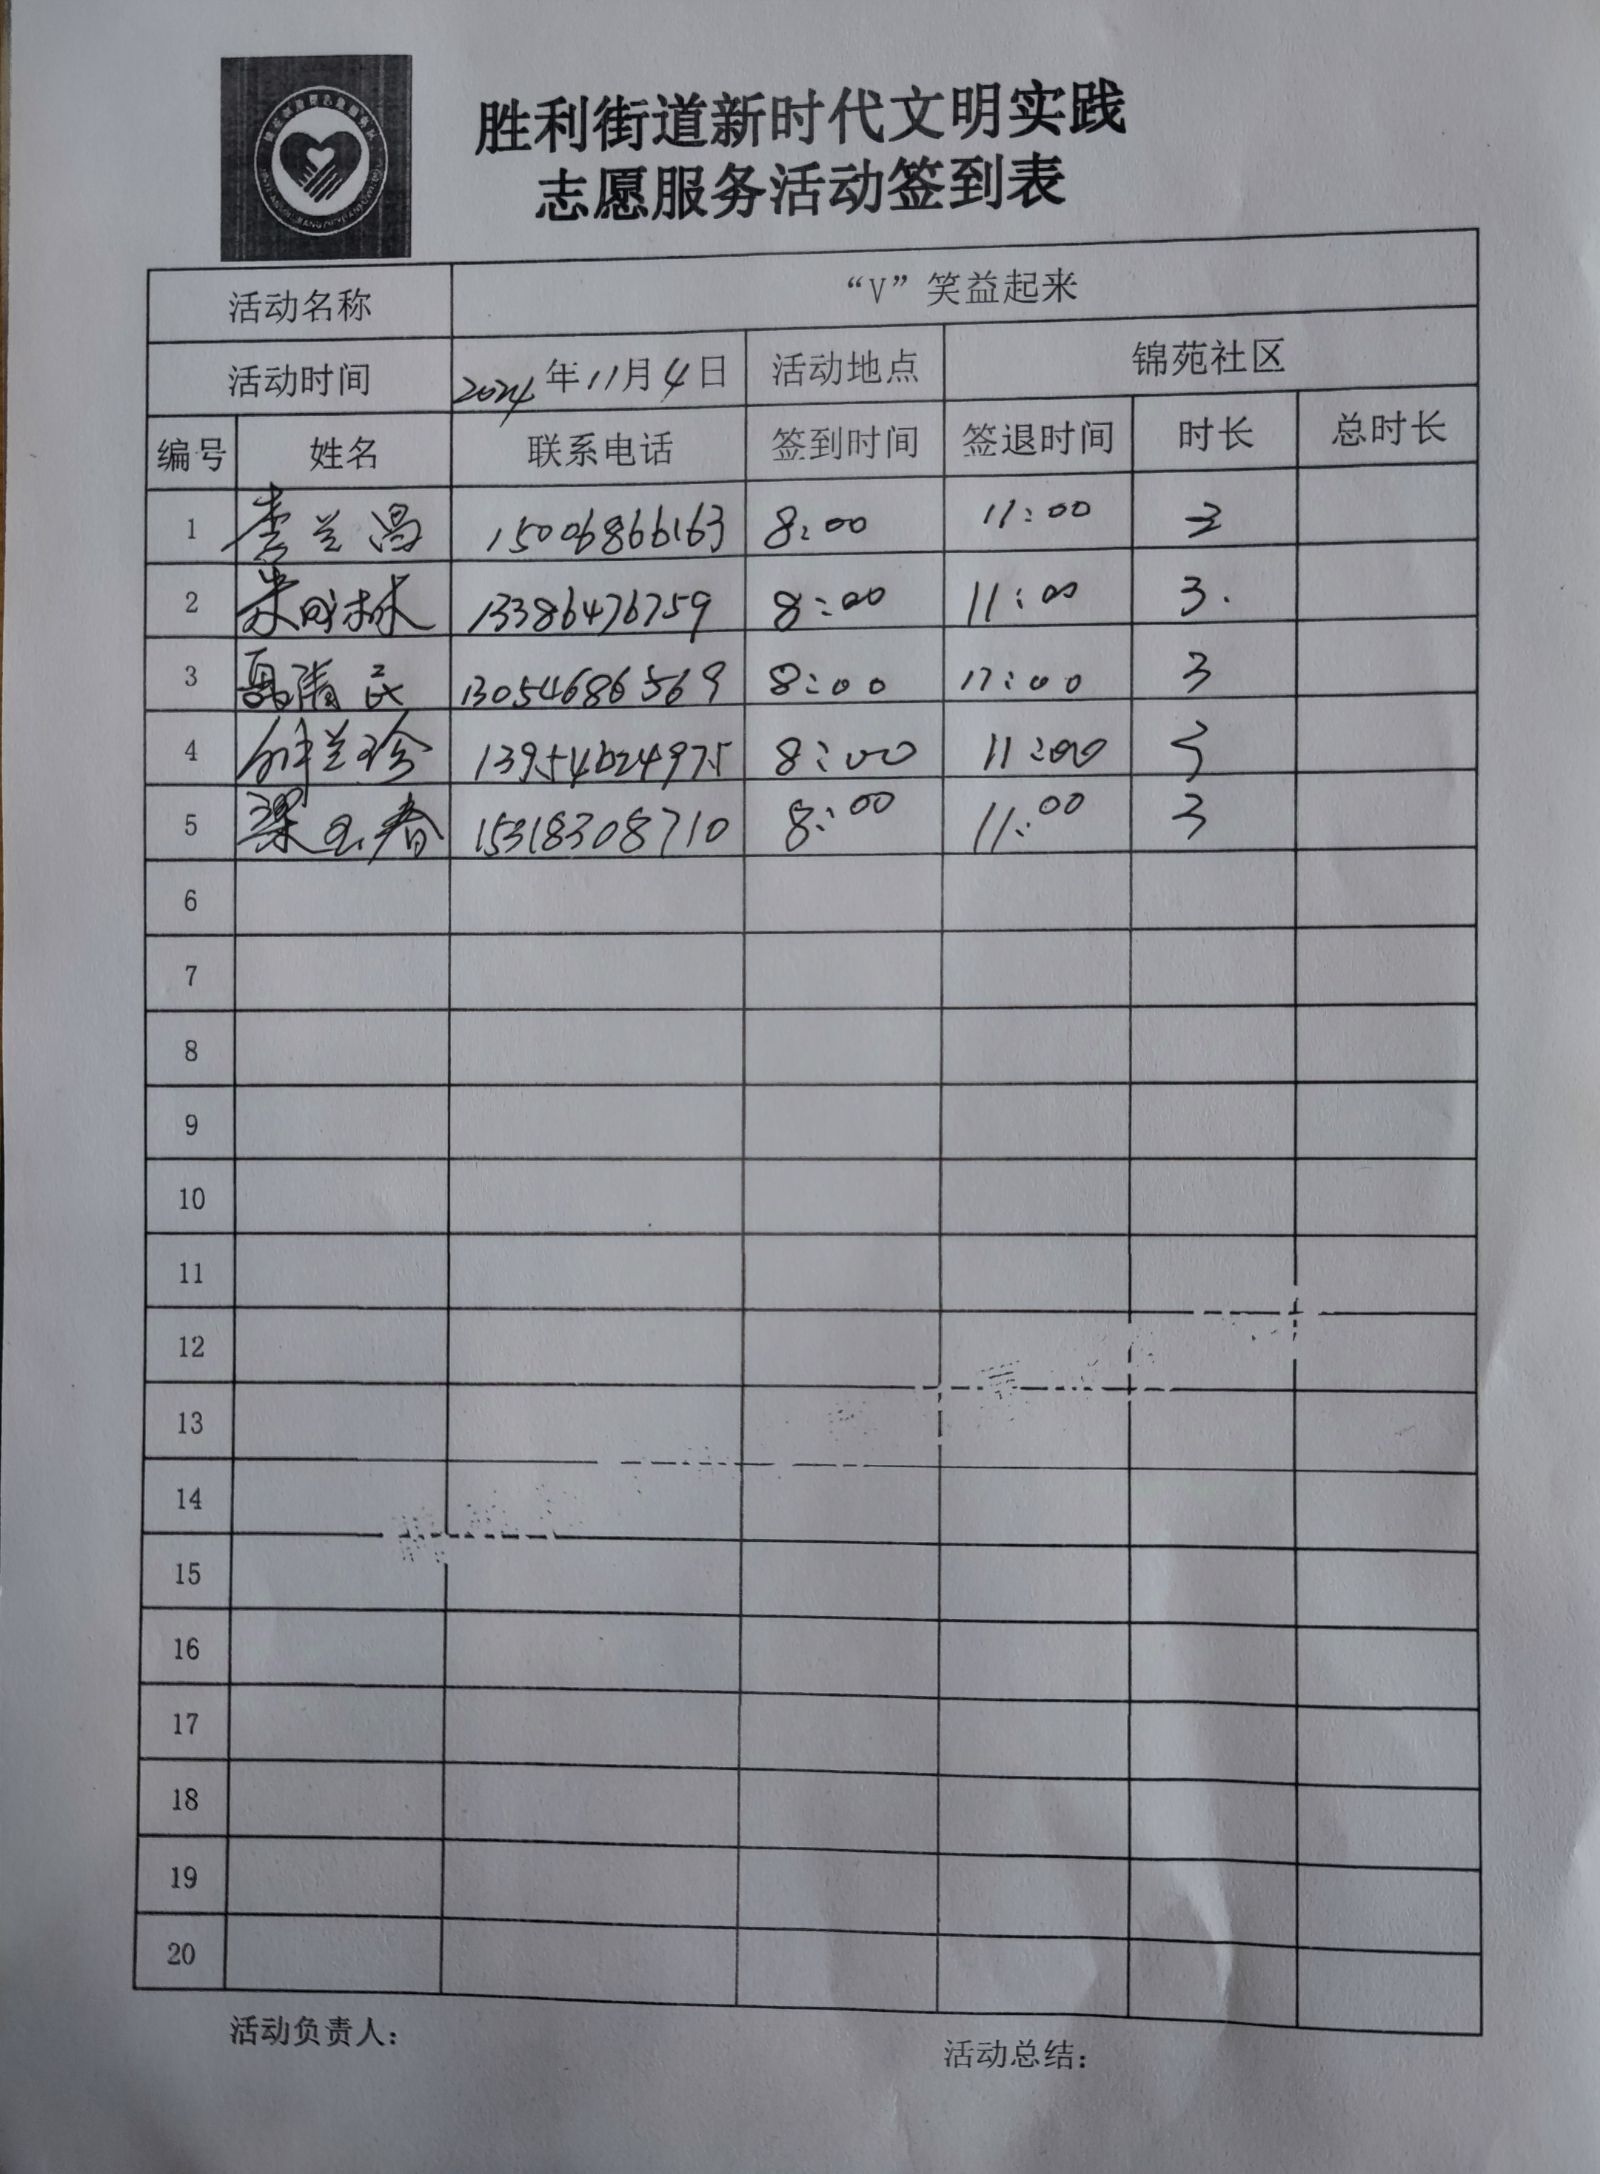 胜利街道新时代文明实践
志愿服务活动签到表
活动名称 “V”笑益起来
活动时间 2024年11月4日 活动地点 锦苑社区
编号 姓名 联系电话 签到时间 签退时间 时长 总时长
1 李兰昌 15006866163 8:00 11:00 3
2 朱成林 13386476759 8:00 11:00 3.
3 清民 13054686569 8:00 11:00 3
4 兰珍 13954624975 8:00 11:00 3
5 梁玉春 15318308710 8:00 11:00 3
6
7
8
9
10
11
12
13
14
15
16
17
18
19
20
活动负责人: 活动总结: